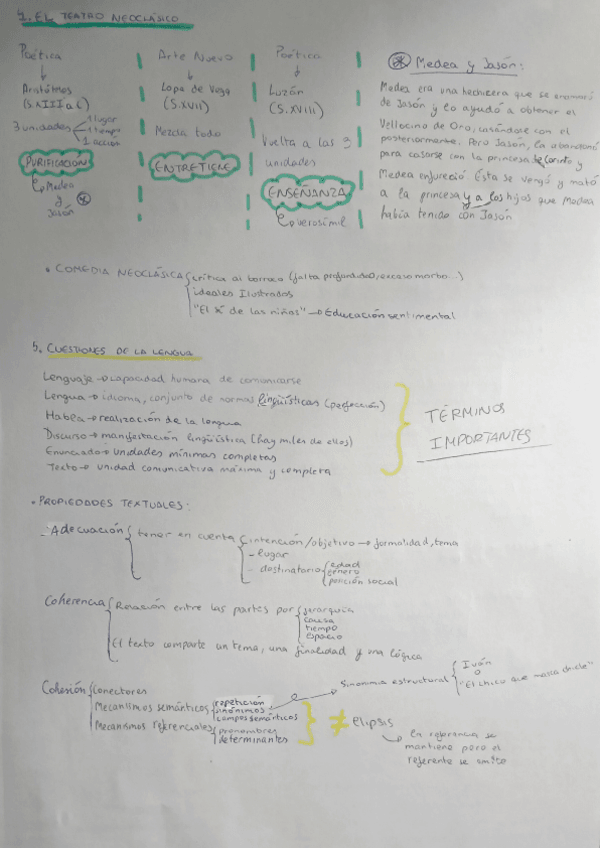 4. EL TEATRO NEOCLÁSICO
Poética
Aristóteles
(S. IIIa.C)
3 unidades 1 lugar
1 tiempo
1 acción
PURIFICACIÓN
Medea
y
Jasón
Arte Nuevo
Lopa de Vega
(S.XVII)
Mezcla todo
ENTRETIENE
Poética
Luzán
(S. XVIII)
Vuelta a las 3
unidades
ENSEÑANZA
verosímil
Medea y Jasón:
Medea era una hechizera que se enamoró
de Jasón y lo ayudó a obtener el
Vellocino de Oro, casándose con él
posteriormente. Pero Jasón, la abandonó
para casarse con la princesa de Corinto y
Medea enfureció. Ésta se vengó y mató
a la princesa y a los hijos que Medea
había tenido con Jasón
• COMEDIA NEOCLÁSICA crítica al barroco (falta profundidad, exceso morbo...)
ideales Ilustrados
"El sí de las niñas" → Educación sentimental
5. CUESTIONES DE LA LENGUA
Lenguaje → capacidad humana de comunicarse
Lengua → idioma, conjunto de normas lingüísticas (perfección)
Habla → realización de la lengua
Discurso → manifestación lingüística (hay miles de ellos)
Enunciado → unidades mínimas completas
Texto → unidad comunicativa máxima y completa
TÉRMINOS
IMPORTANTES
• PROPIEDADES TEXTUALES:
- Adecuación tener en cuenta intención/objetivo → formalidad, tema
- lugar
- destinatario edad
género
posición social
Coherencia Relación entre las partes por jerarquía
causa
tiempo
espacio
El texto comparte un tema, una finalidad y una lógica
Cohesión conectores
Mecanismos semánticos repetición
sinónimos
campos semánticos
Mecanismos referenciales pronombres
determinantes
Sinonimia estructural Iván
o
"El chico que masca chicle"
≠ elipsis
La referencia se
mantiene pero el
referente se omite